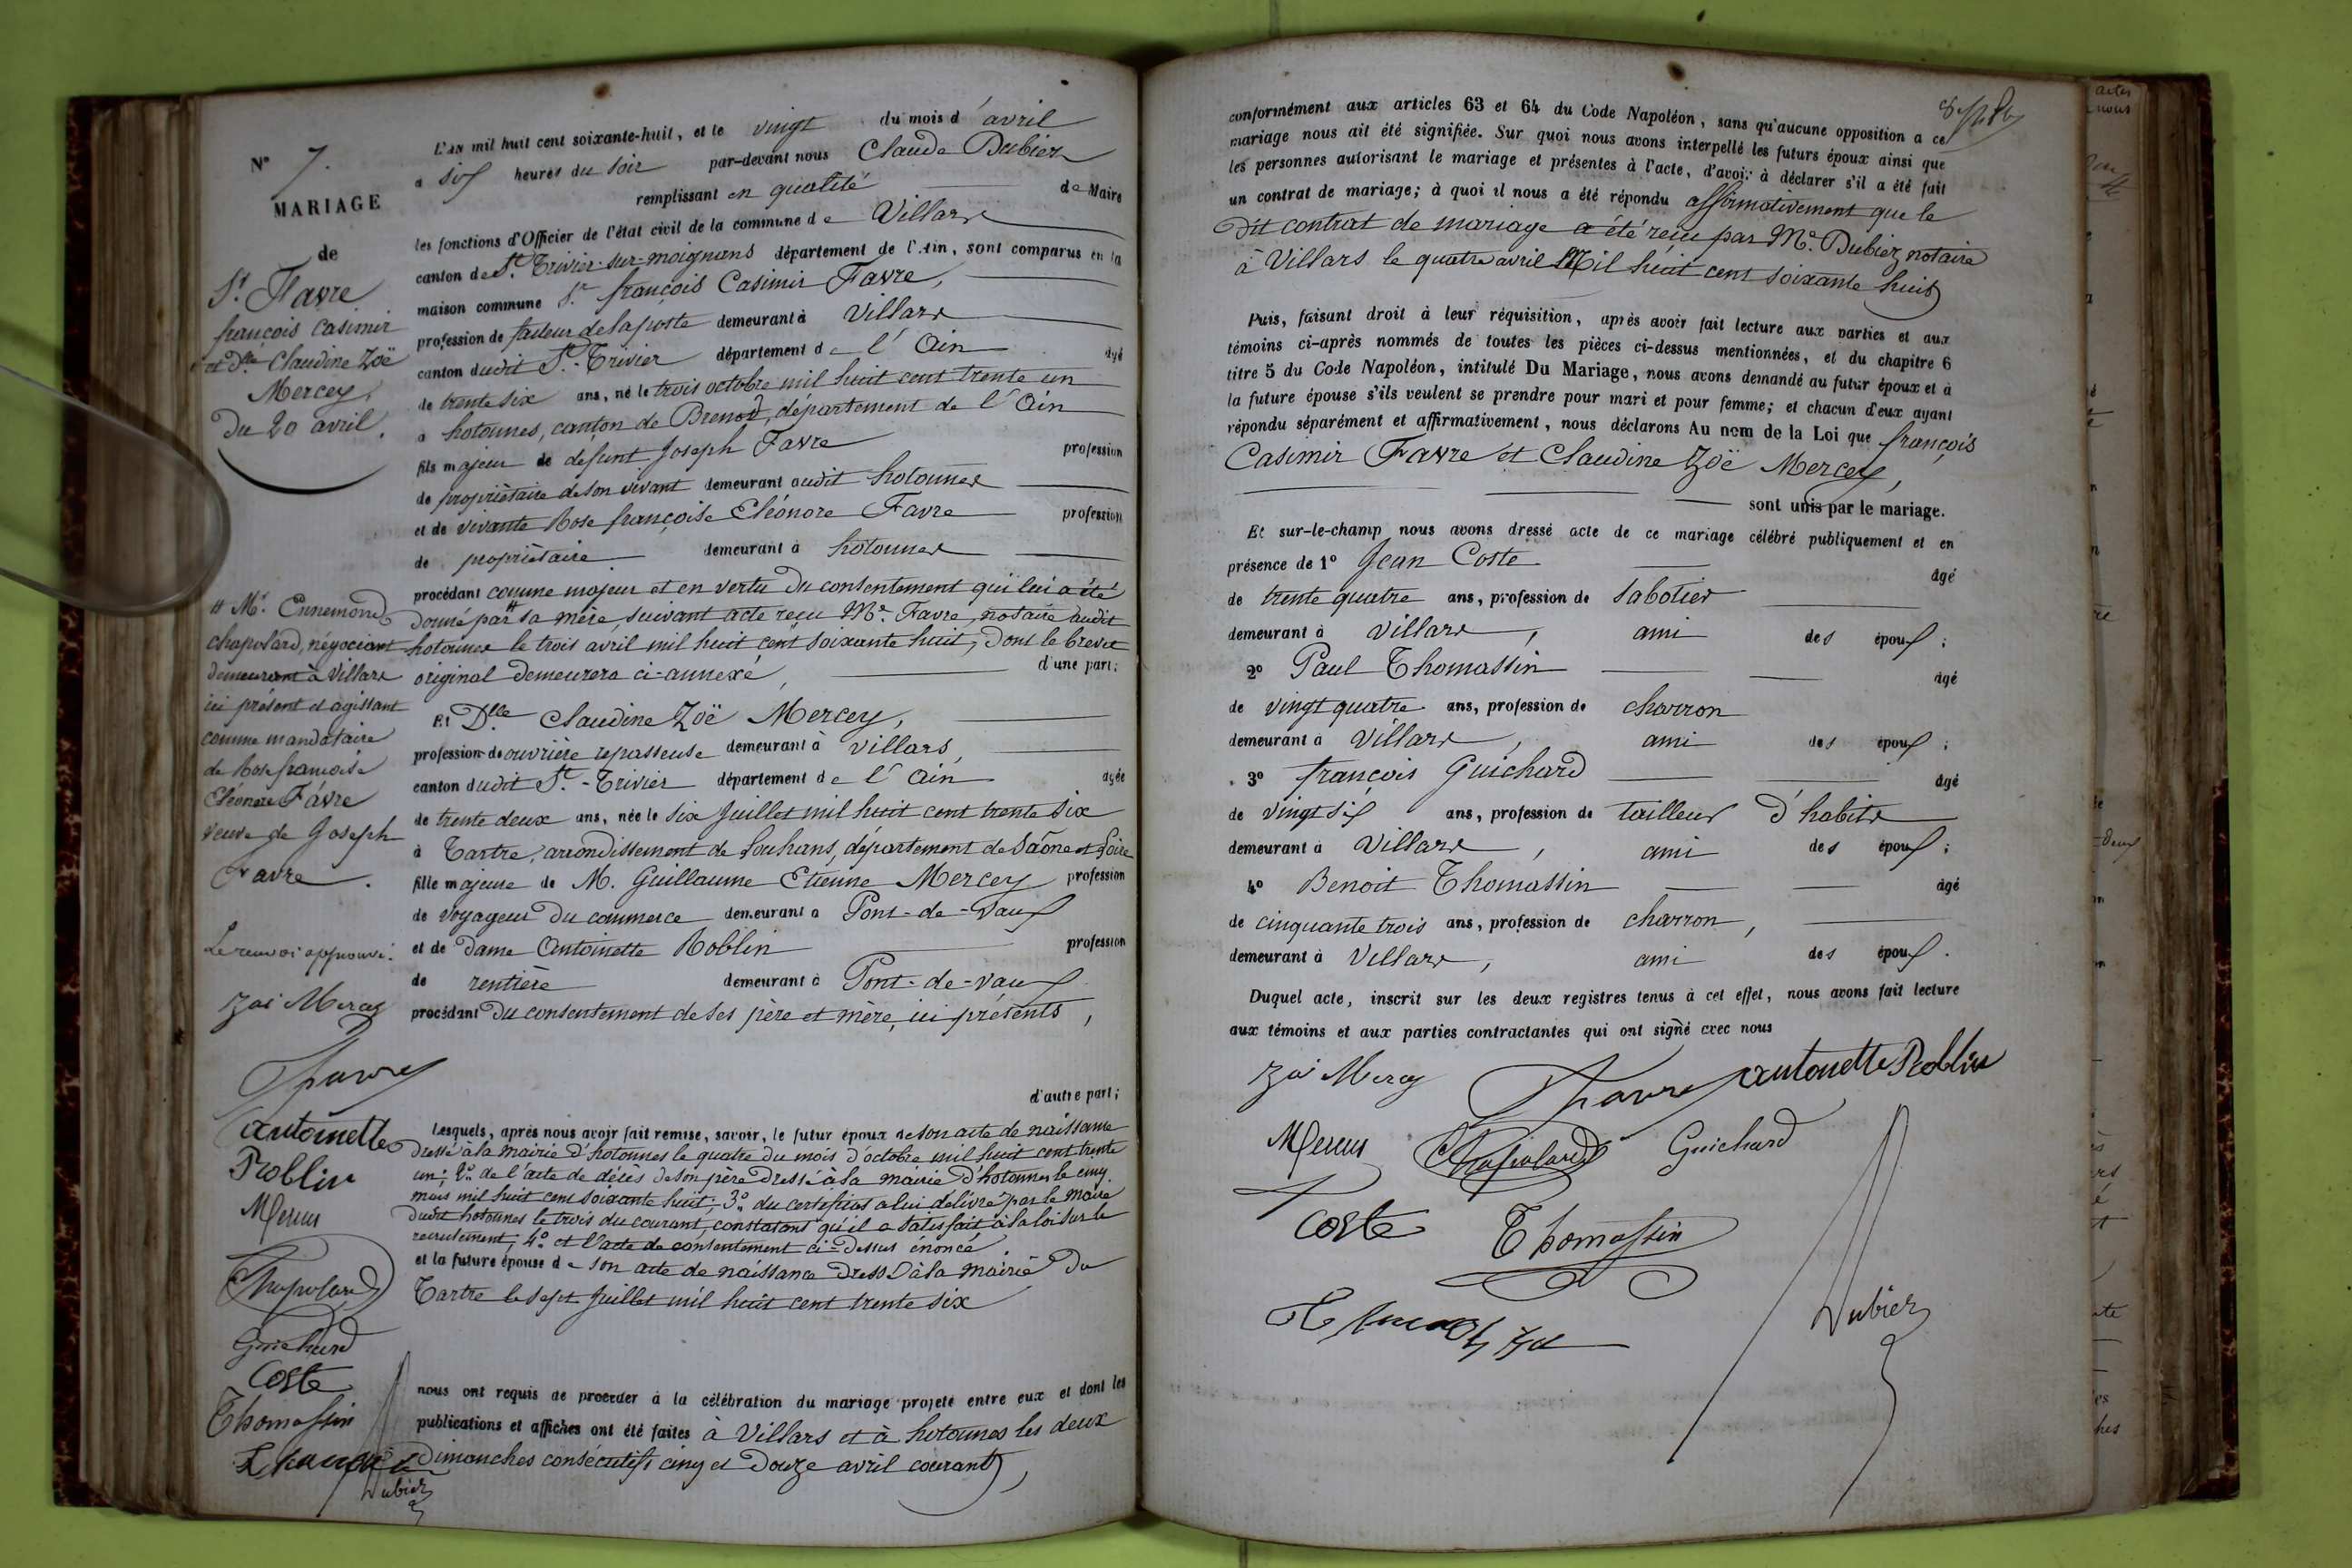 N° 7.
MARIAGE
de
Sr. Favre
françois Casimir
et Dlle. Claudine Zoë
Mercey,
Du 20 avril.
# Mr. Ennemond
Chapolard, négociant
demeurant à Villars
ici présent et agissant
comme mandataire
de Rose françoise
Eléonore Favre
veuve de Joseph
Favre.
Le renvoi approuvé.
Zoé Mercey
Favre
antoinette
Roblin
Chapolard
Guichard
Coste
Thomassin
Dubiez
L'an mil huit cent soixante-huit, et le vingt du mois d'avril
a six heures du soir par-devant nous Claude Dubiez
remplissant en qualité de Maire
les fonctions d'Officier de l'état civil de la commune de Villars
canton de St. Trivier-sur-moignans département de l'Ain, sont comparus en la
maison commune Sr. françois Casimir Favre,
profession de facteur de la poste demeurant à Villars
canton dudit St.-Trivier département de l'Ain âgé
de trente six ans, né le trois octobre mil huit cent trente un
a hotonnes, canton de Brenod, département de l'Ain
fils majeur de defunt Joseph Favre profession
de propriétaire de son vivant demeurant audit hotonnes
et de vivante Rose françoise Eléonore Favre profession
de propriétaire demeurant à hotonnes
procédant comme majeur et en vertu du consentement qui lui a été
donné par # sa mère, suivant acte reçu Me. Favre, notaire audit
hotonnes le trois avril mil huit cent soixante huit, dont le brevet
original demeurera ci-annexé, d'une part;
Et Dlle Claudine Zoë Mercey,
profession de ouvrière repasseuse demeurant à Villars,
canton dudit St.-Trivier département de l'Ain âgée
de trente deux ans, née le six Juillet mil huit cent trente six
à Tartre, arrondissement de Louhans, département de Saône et Loire
fille majeure de M. Guillaume Etienne Mercey profession
de voyageur du commerce demeurant a Pont-de-Vaux
et de dame Antoinette Roblin profession
de rentière demeurant à Pont-de-Vaux
procédant du consentement de ses père et mère, ici présents,
d'autre part;
Lesquels, après nous avoir fait remise, savoir, le futur époux de son acte de naissance
dressé à la mairie d'hotonnes le quatre du mois d'octobre mil huit cent trente
un; 2° de l'acte de décès de son père dressé à la mairie d'hotonnes le cinq
mars mil huit cent soixante huit; 3° du certificat a lui délivré par le Maire
dudit hotonnes le trois du courant, constatant qu'il a satisfait à la loi sur le
recrutement; 4° et l'acte de consentement ci-dessus énoncé
et la future épouse de son acte de naissance dressé à la mairie du
Tartre le sept Juillet mil huit cent trente six
nous ont requis de procéder à la célébration du mariage projeté entre eux et dont les
publications et affiches ont été faites à Villars et à hotonnes les deux
Dimanches consécutifs cinq et douze avril courant,
conformément aux articles 63 et 64 du Code Napoléon, sans qu'aucune opposition a ce
mariage nous ait été signifiée. Sur quoi nous avons interpellé les futurs époux ainsi que
les personnes autorisant le mariage et présentes à l'acte, d'avoir à déclarer s'il a été fait
un contrat de mariage; à quoi il nous a été répondu affirmativement que le
dit contrat de mariage a été reçu par Me. Dubiez notaire
à Villars le quatre avril Mil huit cent soixante huit
Puis, faisant droit à leur réquisition, après avoir fait lecture aux parties et aux
témoins ci-après nommés de toutes les pièces ci-dessus mentionnées, et du chapitre 6
titre 5 du Code Napoléon, intitulé Du Mariage, nous avons demandé au futur époux et à
la future épouse s'ils veulent se prendre pour mari et pour femme; et chacun d'eux ayant
répondu séparément et affirmativement, nous déclarons Au nom de la Loi que françois
Casimir Favre et Claudine Zoë Mercey,
sont unis par le mariage.
Et sur-le-champ nous avons dressé acte de ce mariage célébré publiquement et en
présence de 1° Jean Coste âgé
de trente quatre ans, profession de sabotier
demeurant à Villars, ami des époux;
2° Paul Thomassin âgé
de vingt quatre ans, profession de charron
demeurant à Villars, ami des époux;
3° françois Guichard âgé
de vingt six ans, profession de tailleur d'habits
demeurant à Villars, ami des époux;
4° Benoit Thomassin âgé
de cinquante trois ans, profession de charron,
demeurant à Villars, ami des époux.
Duquel acte, inscrit sur les deux registres tenus à cet effet, nous avons fait lecture
aux témoins et aux parties contractantes qui ont signé avec nous
Zoé Mercey Favre antoinette Roblin
Chapolard Guichard
Coste Thomassin
Dubiez